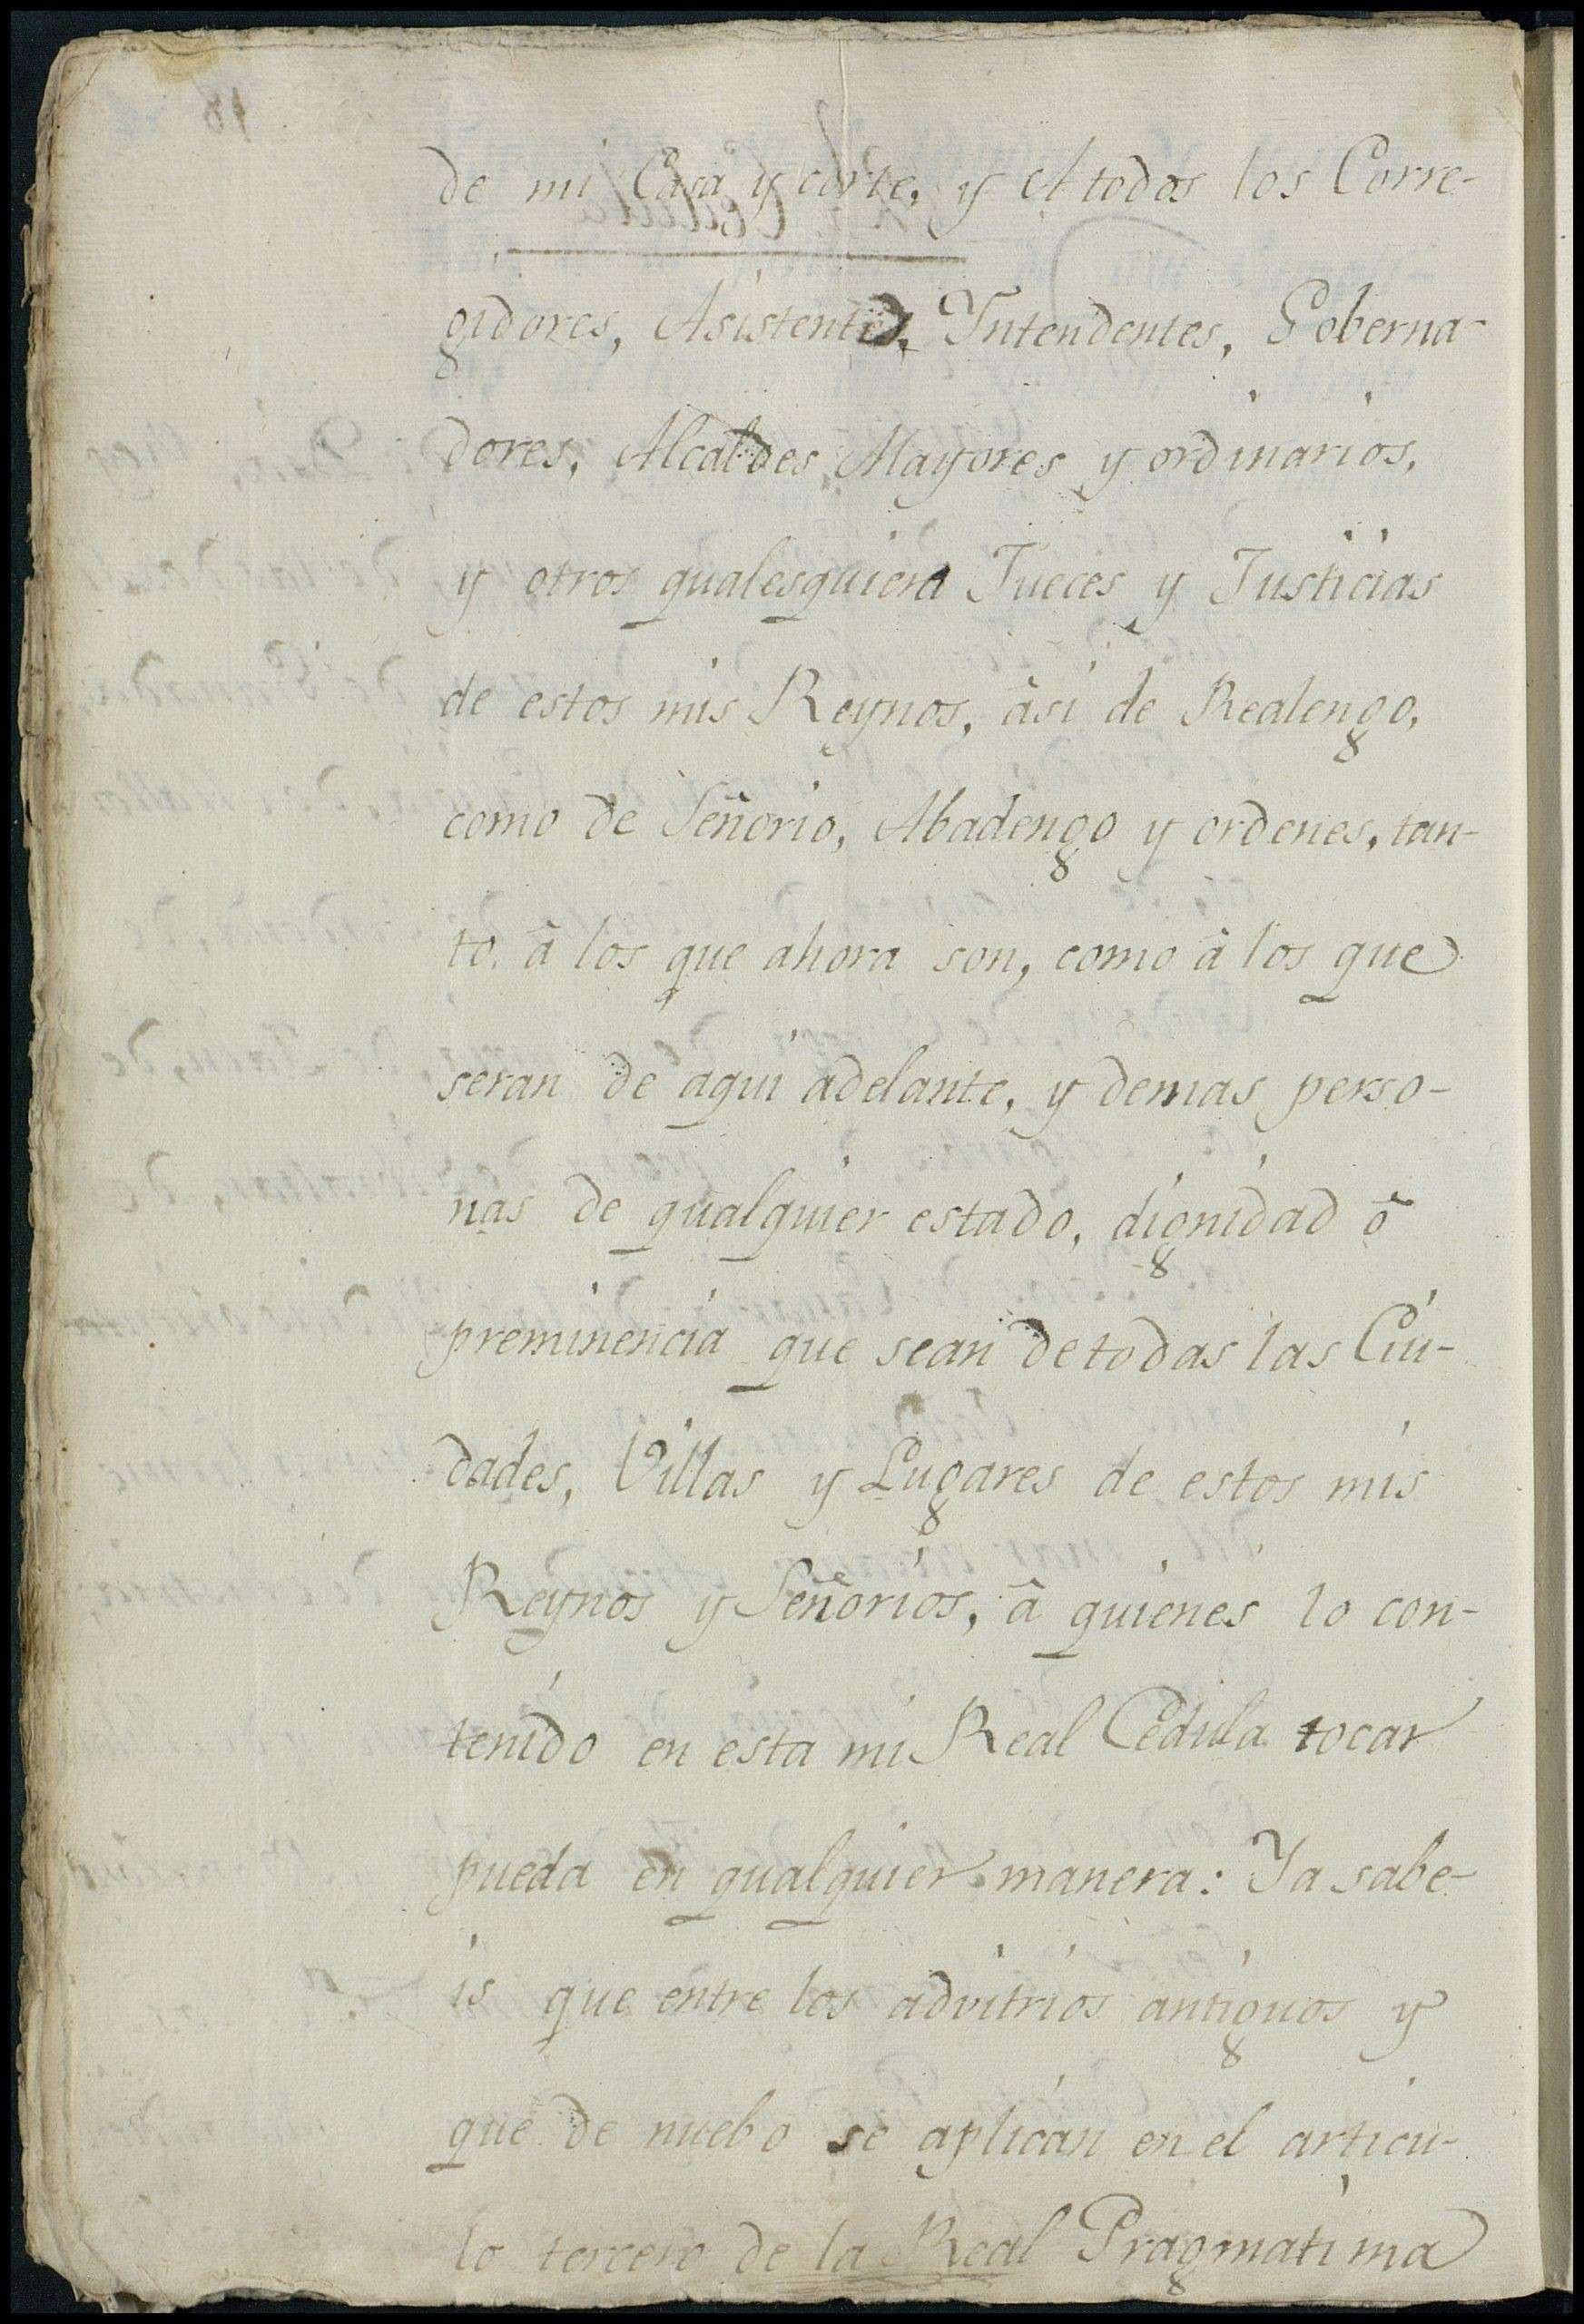 de mi Casa y corte, y el todos los Corre-
gidores, Asistentes, Yntendentes, Goberna-
dores, Alcaldes Mayores y ordinarios,
y otros qualesquiera Jueces y Justicias
de estos mis Reynos, âsi de Realengo,
como de Señorio, Abadengo y ordenes, tan-
to â los que ahora son, como â los que
seran de aqui adelante, y demas perso-
nas de qualquier estado, dignidad ô
preminencia que sean de todas las Ciu-
dades, Villas y Lugares de estos mis
Reynos y Señorios, â quienes lo con-
tenido en esta mi Real Cedula tocar
pueda en qualquier manera: Ya sabe-
is que entre los advitrios antiguos y
que de nuebo se aplican en el articu-
lo tercero de la Real Pragmatima